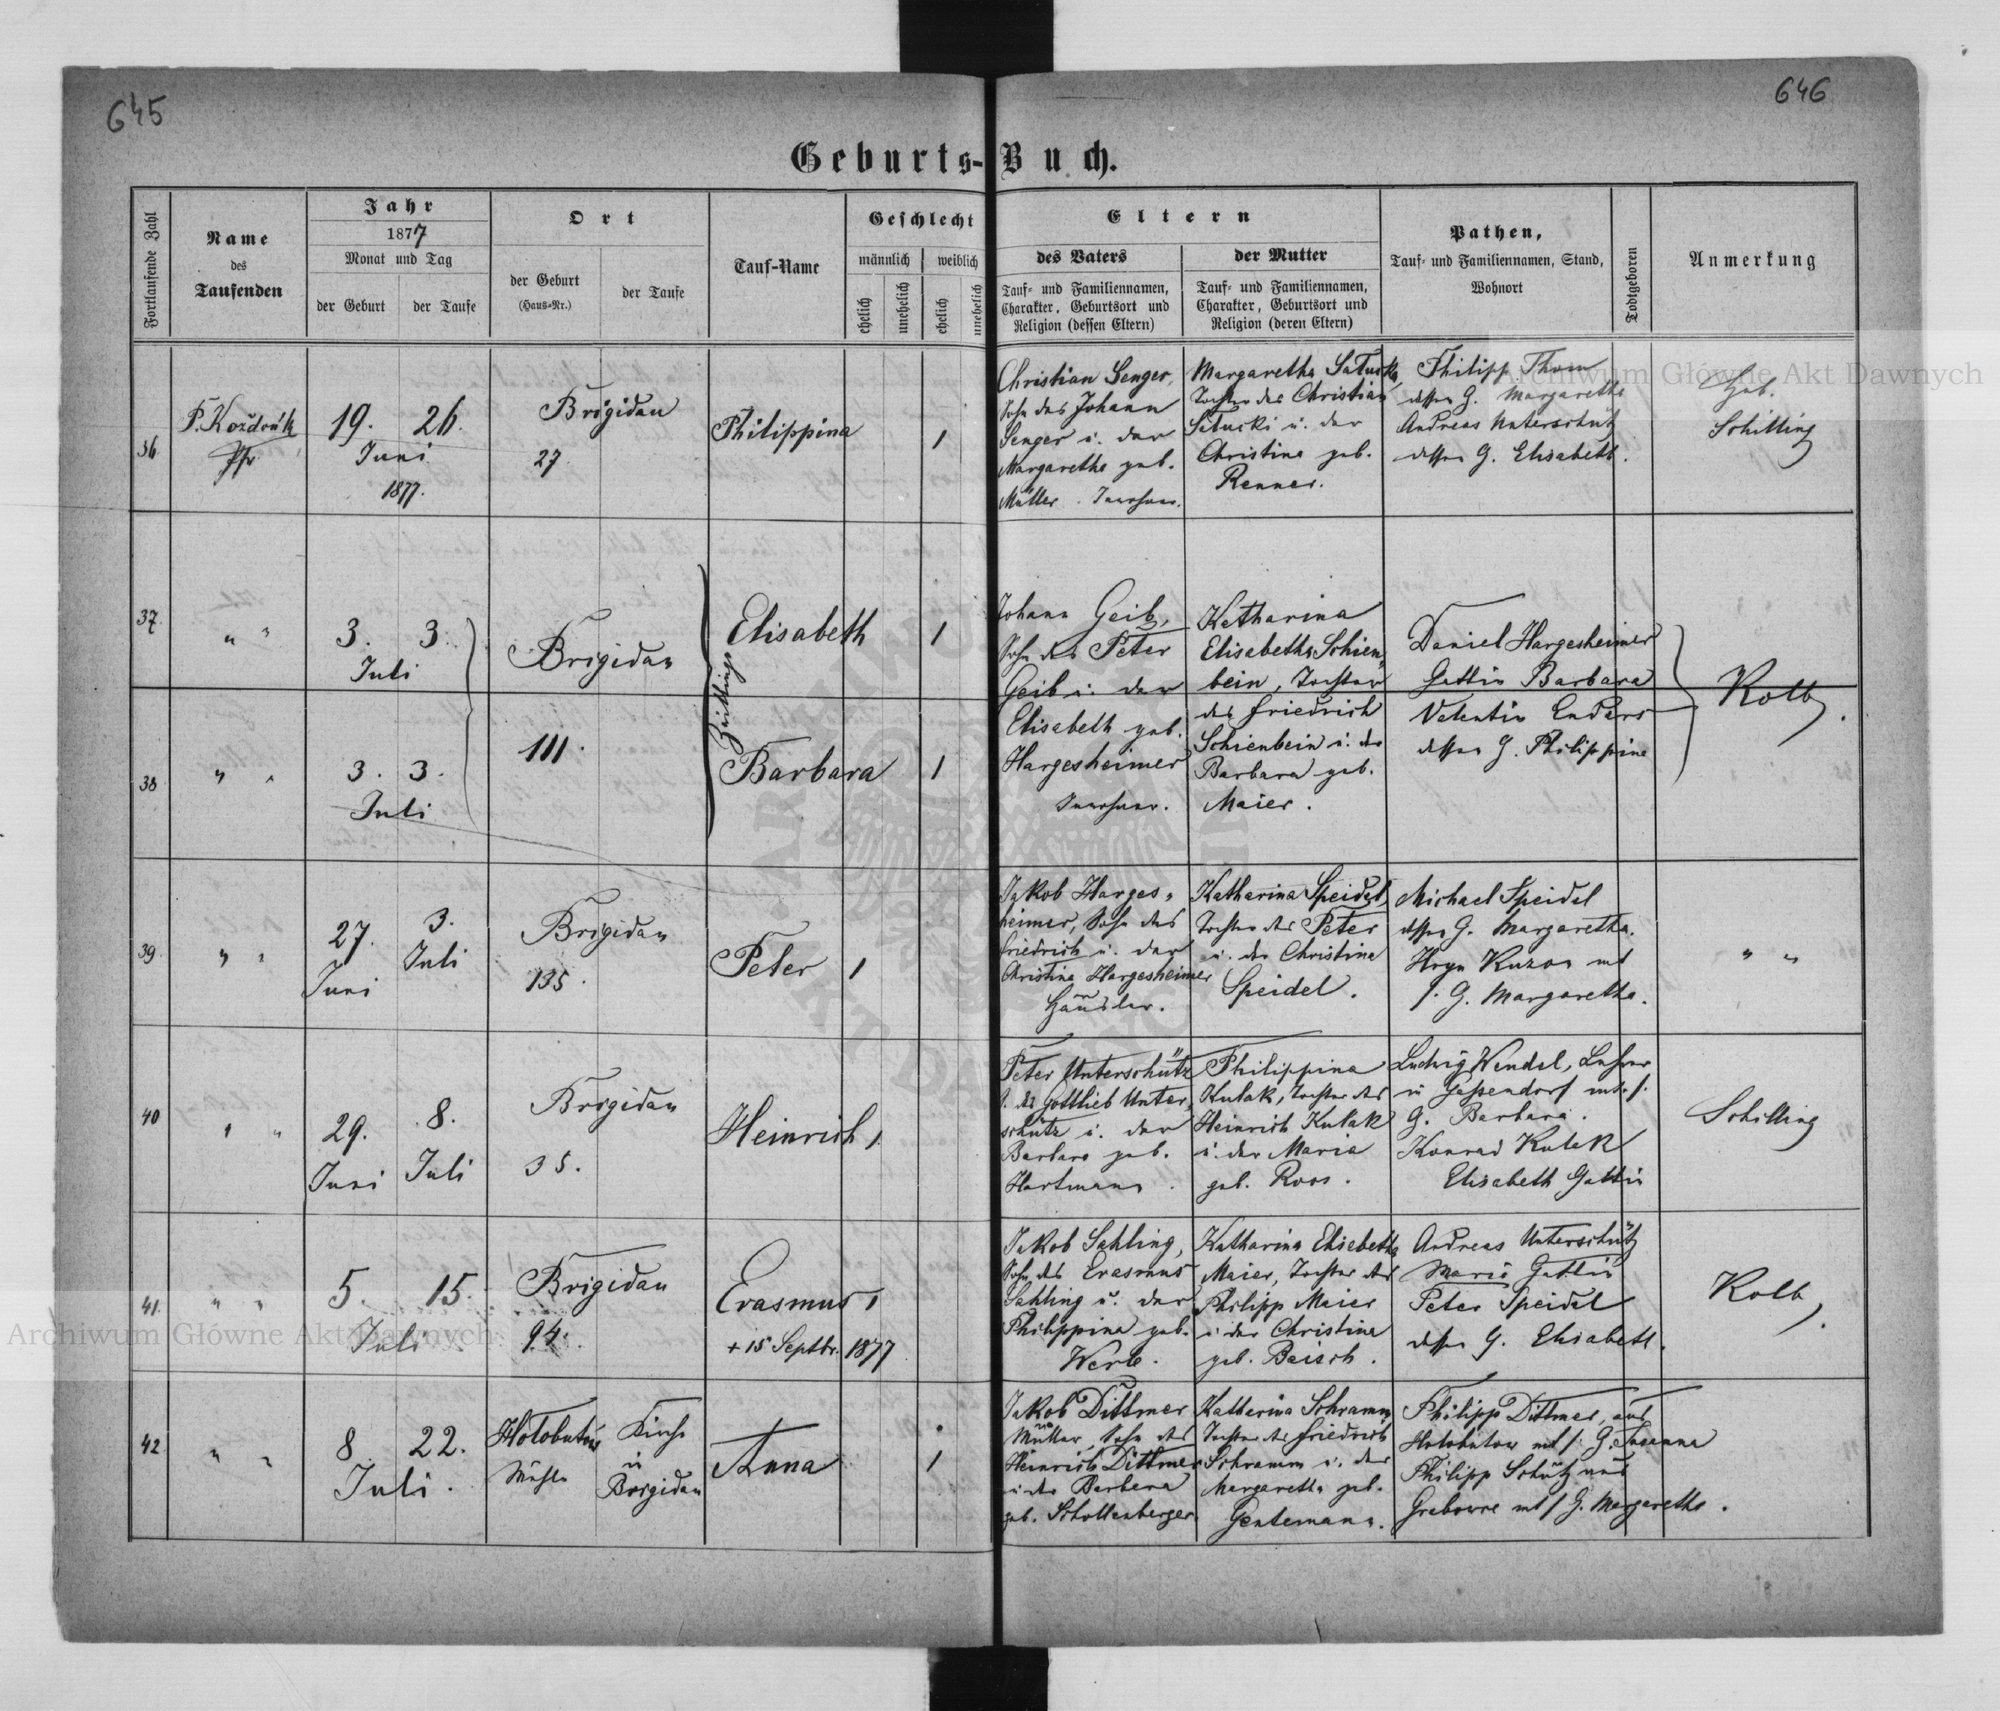 645
646
Geburts-Buch.
Fortlaufende Zahl
Name
des
Taufenden
Jahr
1877
Monat und Tag
der Geburt
der Taufe
Ort
der Geburt
(Haus-Nr.)
der Taufe
Tauf-Name
Geschlecht
männlich
weiblich
ehelich
unehelich
ehelich
unehelich
Eltern
des Vaters
Tauf- und Familiennamen,
Charakter, Geburtsort und
Religion (dessen Eltern)
der Mutter
Tauf- und Familiennamen,
Charakter, Geburtsort und
Religion (deren Eltern)
Pathen,
Tauf- und Familiennamen, Stand,
Wohnort
Todtgeboren
Anmerkung
36
P. Koždoń
Pfr
19. 26.
Juni
1877.
Brigidau
27
Philippina
1
Christian Senger,
Sohn des Johann
Senger u. der
Margaretha geb.
Müller. Inwohner.
Margaretha
Tochter des Christian
u. der
Christina geb.
Renner.
Philipp Thom
dessen G. Margaretha
Andreas Unterschütz
dessen G. Elisabeth.
Geb.
Schilling
37
" "
3. 3.
Juli
Brigidau
111.
Zwillinge
Elisabeth
1
Johann Geib,
Sohn des Peter
Geib u. der
Elisabeth geb.
Hargesheimer
Inwohner.
Katharina
Elisabetha Schien-
bein, Tochter
des Friedrich
Schienbein u. der
Barbara geb.
Maier.
Daniel Hargesheimer
Gattin Barbara
Valentin Enders
dessen G. Philippine
Kolb.
38
" "
3. 3.
Juli
Barbara
1
39
" "
27. 3.
Juni Juli
Brigidau
135.
Peter
1
Jakob Harges-
heimer, Sohn des
Friedrich u. der
Christina Hargesheimer
Häusler.
Katharina Speidel,
Tochter des Peter
u. der Christina
Speidel.
Michael Speidel
dessen G. Margaretha.
Hryn mit
s. G. Margaretha.
" "
40
" "
29. 8.
Juni Juli
Brigidau
35.
Heinrich
1
Peter Unterschütz
S. des Gottlieb Unter-
schütz u. der
Barbara geb.
Hartmann.
Philippina
Kulak, Tochter des
Heinrich Kulak
u. der Maria
geb. Roos.
Ludwig Wendel, Lehrer
in Gassendorf mit s.
G. Barbara.
Konrad Kulak
Elisabeth Gattin
Schilling
41.
" "
5. 15.
Juli
Brigidau
94.
Erasmus
1
+ 15 Septbr. 1877
Jakob Sahling,
Sohn des Erasmus
Sahling u. der
Philippina geb.
Werle.
Katharina Elisabetha
Maier, Tochter des
Philipp Maier
u. der Christina
geb. Beisch.
Andreas Unterschütz
Maria Gattin
Peter Speidel
dessen G. Elisabeth.
Kolb.
42
" "
8. 22.
Juli.
Holobutów
Mühle
Kirche
in
Brigidau
Anna
1
Jakob Dittmer
Müller, Sohn des
Heinrich Dittmer
u. der Barbara
geb. Schollenberger
Katharina Schramm
Tochter des Friedrich
Schramm u. der
Margaretha geb.
Gentemann.
Philipp Dittmer, aus
Holobutow mit s. G. Susanna
Philipp Schütz aus
Grabowce mit s. G. Margaretha.
Archiwum Główne Akt Dawnych
Archiwum Główne Akt Dawnych